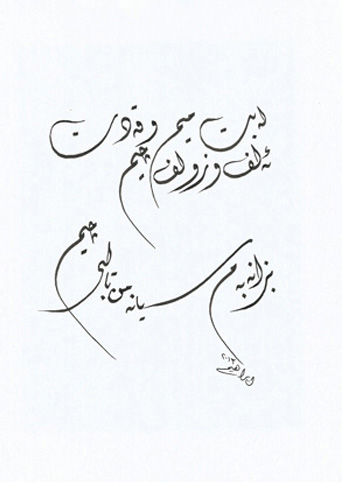 لەبت میم و قەدت
ئەلف و زولف جیم
بزانە بەم سیانە من تالبی چیم